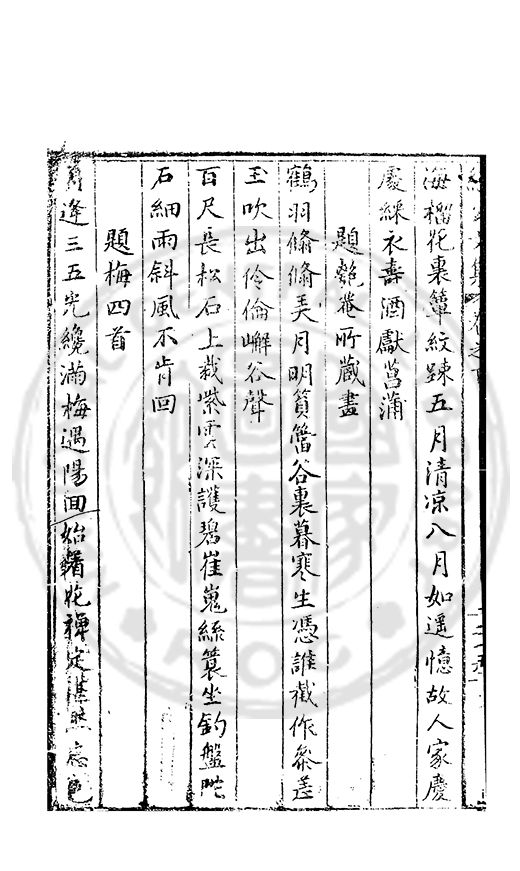 海榴花裏簟紋踈五月清凉八月如遥憶故人家慶
慶綵衣壽酒獻菖蒲
題 菴所藏畫
鶴羽翛翛美月明篔簹谷裏暮寒生憑誰截作參差
玉吹出伶倫嶰谷聲
百尺長松石上栽紫雲深護碧崔嵬絲簑坐釣盤陀
石細雨斜風不肯回
題梅四首
逢三五光纔滿梅遇陽回始著花禪定 應色